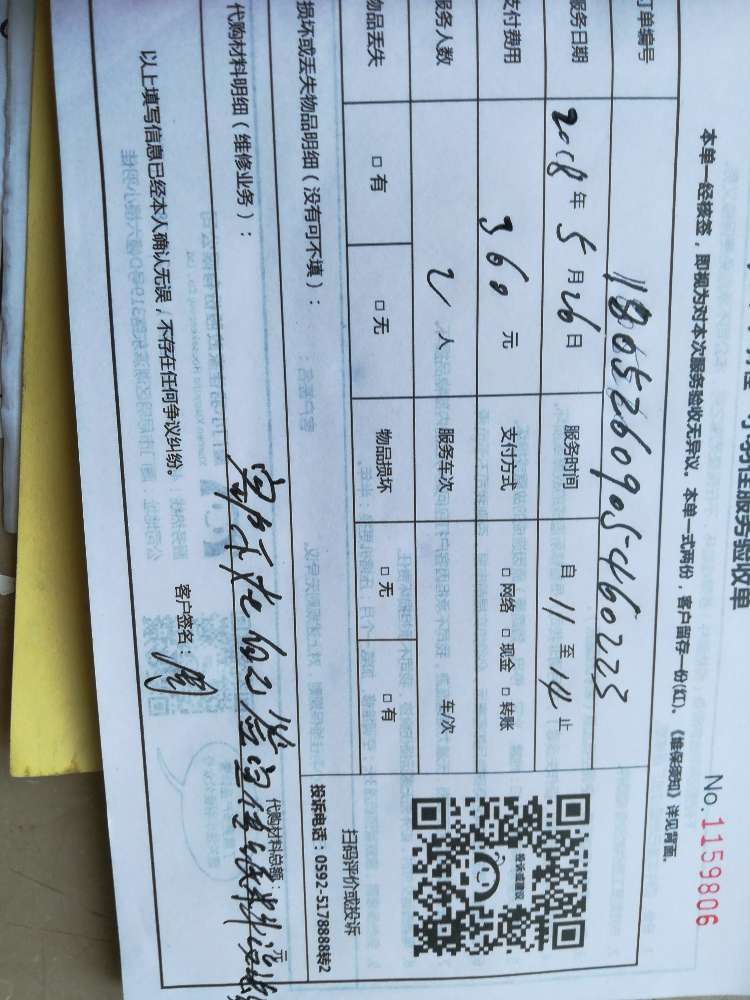 服务验收单
No.1159806
本单一经核签，即视为对本次服务验收无异议。本单一式两份，客户留存一份(红)。《维保须知》详见背面。
订单编号 1805260905460223
服务日期 2018年5月26日 服务时间 自11至14止
支付费用 360元 支付方式 □网络 □现金 □转账
服务人数 2人 服务车次 车/次
物品丢失 □有 □无 物品损坏 □无 □有
投诉或建议
扫码评价或投诉
投诉电话：0592-5178888转2
损坏或丢失物品明细（没有可不填）：
代购材料明细（维修业务）：
代购材料总额： 元
以上填写信息已经本人确认无误，不存在任何争议纠纷。
客户签名：